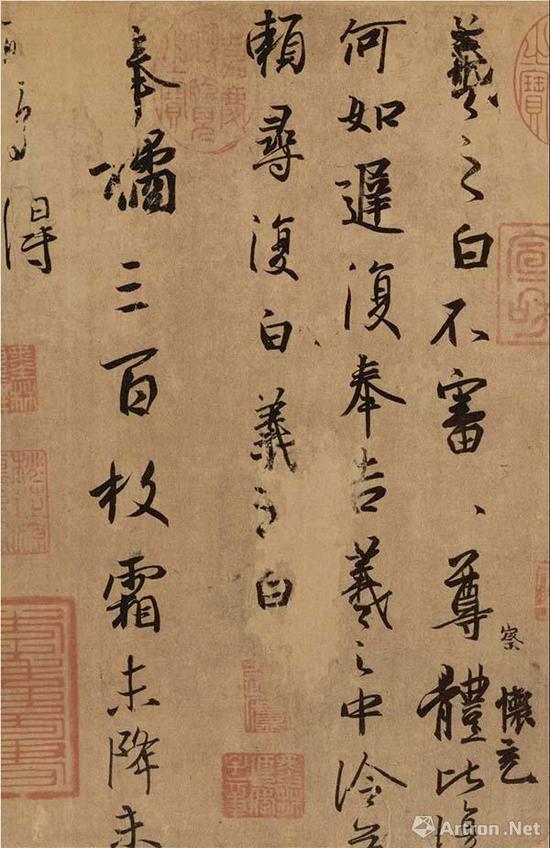 羲之白不審、尊體比復
察
懷充
何如遲復奉告羲之中冷無
賴尋復白羲之白
奉橘三百枚霜未降未
可多得
Artron.Net